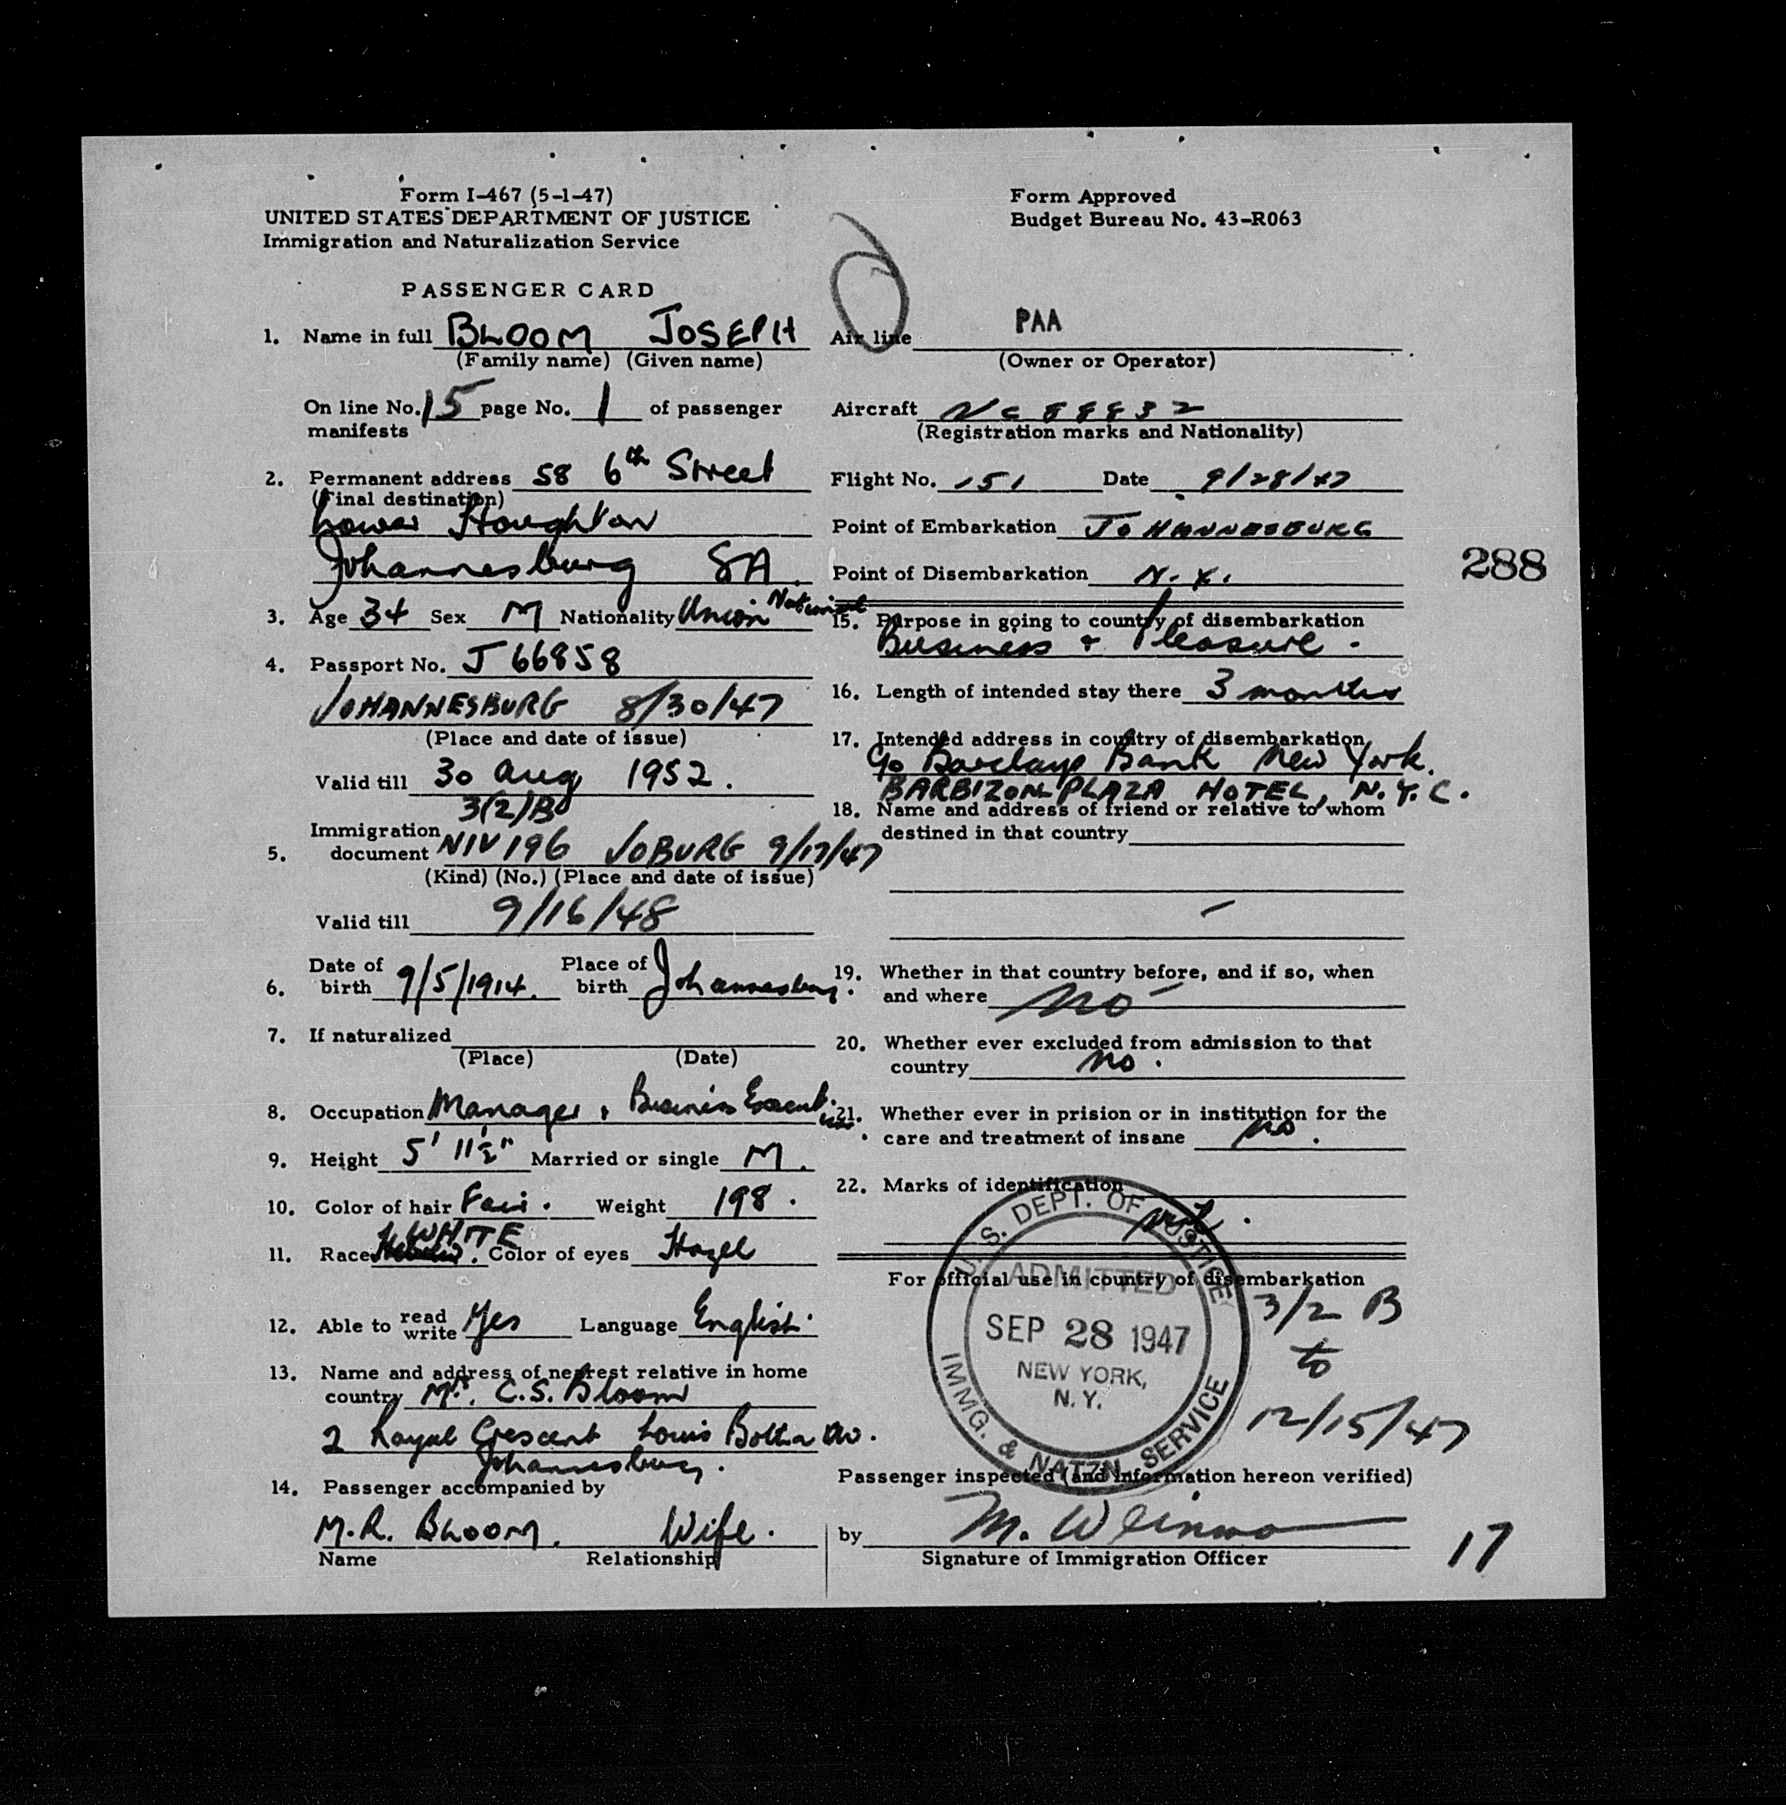 Form I-467 (5-1-47)
UNITED STATES DEPARTMENT OF JUSTICE
Immigration and Naturalization Service
PASSENGER CARD
1. Name in full BLOOM JOSEPH
(Family name) (Given name)
On line No. 15 page No. 1 of passenger
manifests
2. Permanent address 58 6th Street
(Final destination)
Lower Houghton
Johannesburg SA.
3. Age 34 Sex M Nationality Union National
4. Passport No. J 66858
JOHANNESBURG 8/30/47
(Place and date of issue)
Valid till 30 Aug 1952.
3(2)/B
Immigration
5. document NIV 196 JOBURG 9/17/47
(Kind) (No.) (Place and date of issue)
Valid till 9/16/48
Date of Place of
6. birth 9/5/1914. birth Johannesburg.
7. If naturalized
(Place) (Date)
8. Occupation Manager, Business Executive.
9. Height 5' 11½" Married or single M.
10. Color of hair Fair. Weight 198.
WHITE
11. Race Hebrew. Color of eyes Hazel
12. Able to read write Yes Language English.
13. Name and address of nearest relative in home
country Mrs. C.S. Bloom
2 Royal Crescent Louis Botha Av.
Johannesburg.
14. Passenger accompanied by
M.R. BLOOM. Wife.
Name Relationship
Form Approved
Budget Bureau No. 43-R063
PAA
Air line
(Owner or Operator)
Aircraft NC 88832
(Registration marks and Nationality)
Flight No. 151 Date 9/28/47
Point of Embarkation JOHANNESBURG
Point of Disembarkation N.Y.
288
15. Purpose in going to country of disembarkation
Business & Pleasure.
16. Length of intended stay there 3 months
17. Intended address in country of disembarkation
c/o Barclays Bank New York.
BARBIZON-PLAZA HOTEL, N.Y.C.
18. Name and address of friend or relative to whom
destined in that country
—
19. Whether in that country before, and if so, when
and where no —
20. Whether ever excluded from admission to that
country no.
21. Whether ever in prision or in institution for the
care and treatment of insane no.
22. Marks of identification
nil.
For official use in country of disembarkation
U.S. DEPT. OF JUSTICE
ADMITTED
SEP 28 1947
NEW YORK,
N.Y.
IMMG. & NATZN. SERVICE
3/2 B
to
12/15/47
Passenger inspected (and information hereon verified)
by M.
Signature of Immigration Officer
17